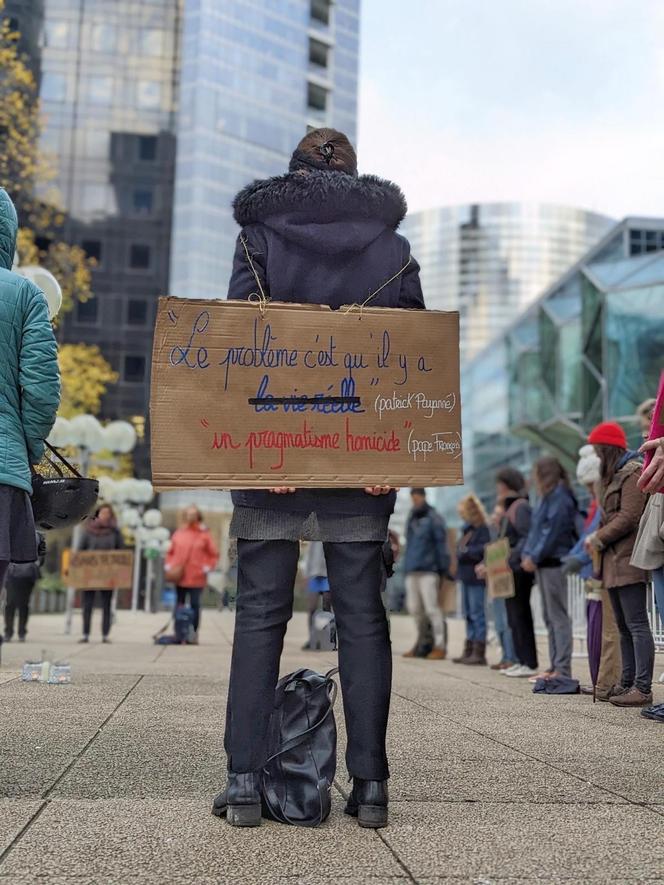 "Le problème c'est qu'il y a
la vie réelle" (patrick Poyanné)
"un pragmatisme homicide" (pape François)